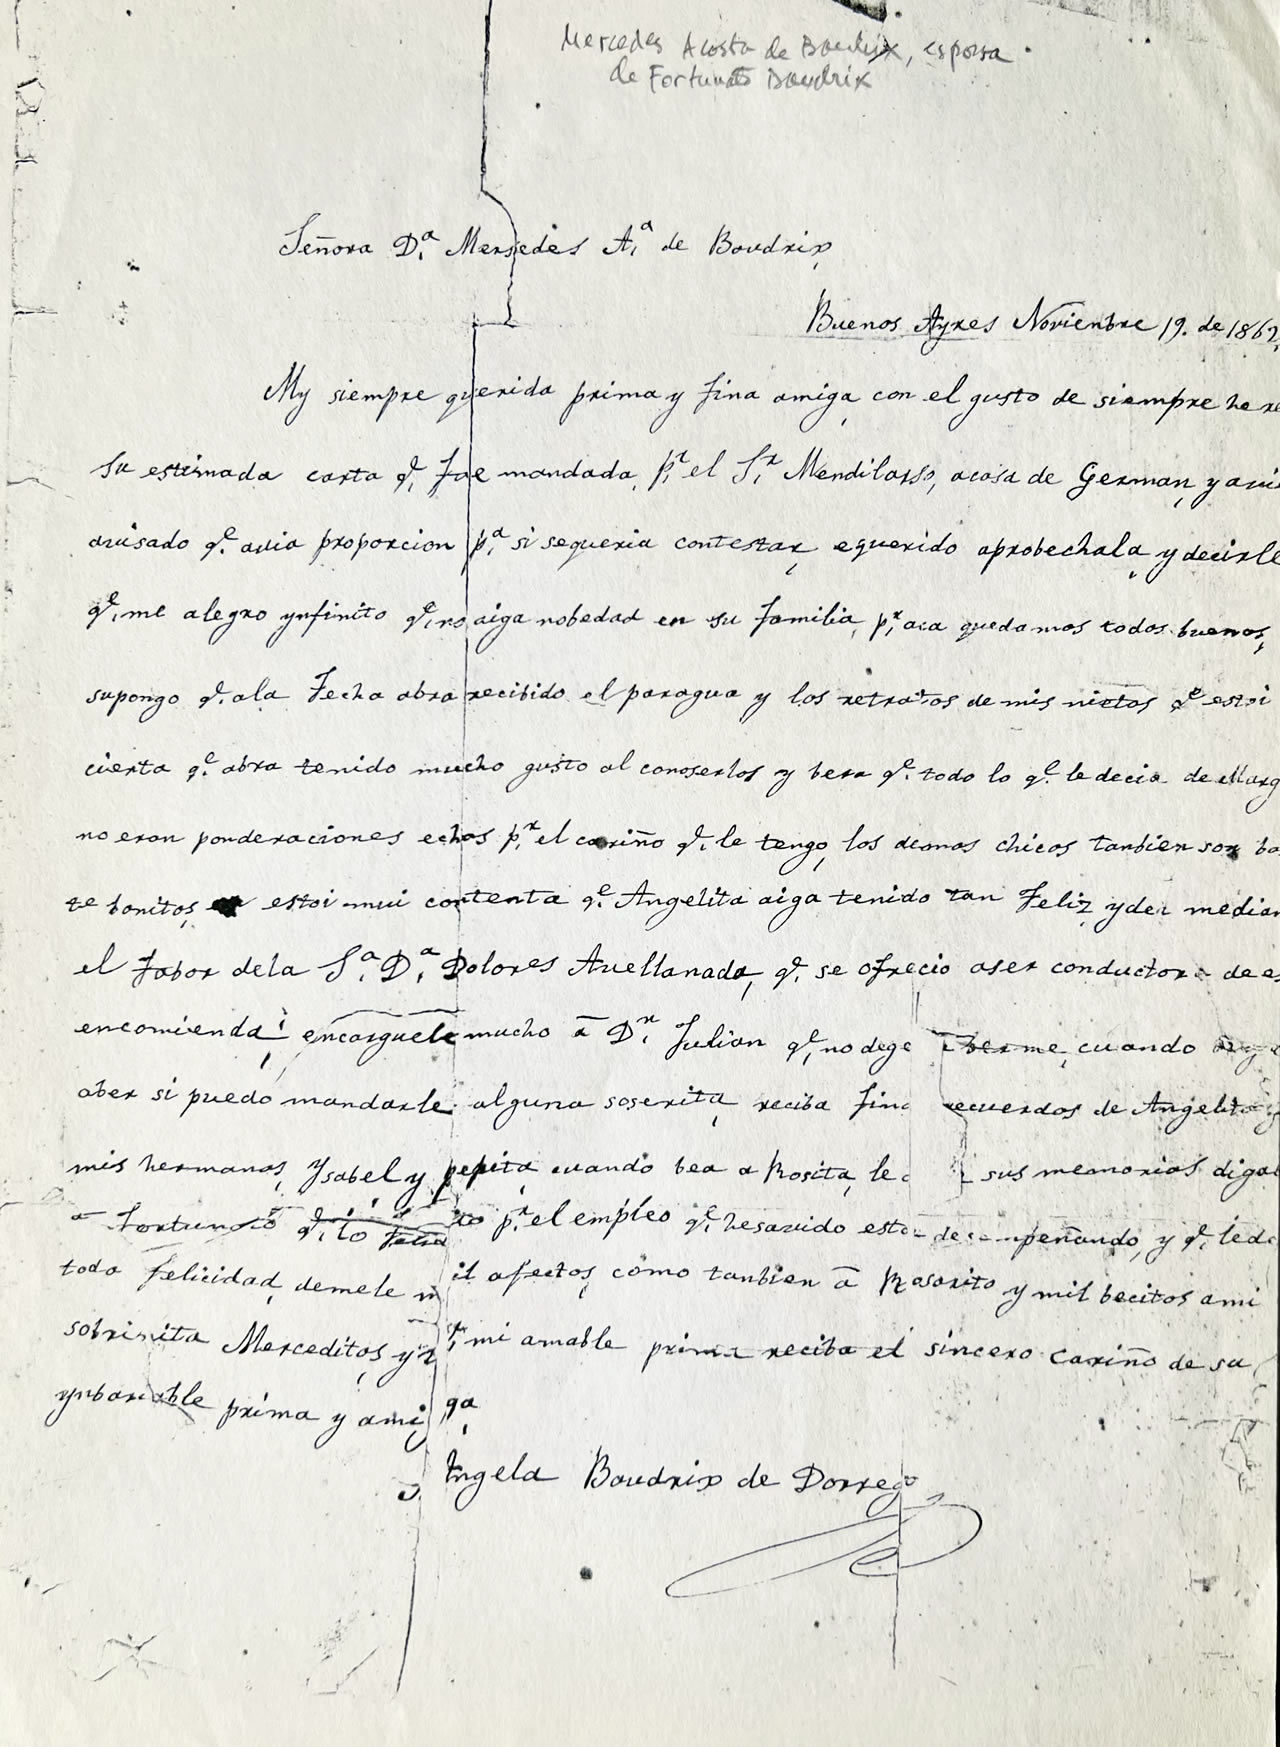 Mercedes Acosta de Boudrix, esposa
de Fortunato Boudrix
Señora D.ª Mersedes A.ª de Boudrix
Buenos Ayres Noviembre 19. de 1862,
My siempre querida prima y fina amiga, con el gusto de siempre he re
su estimada carta q.e fue mandada, p.r el S.r Mendilarso, acasa de German, y avie
avisado q.e avia proporcion p.a si sequeria contestar, equerido aprobechala, y decirle
q.e me alegro ynfinito q.e no aiga nobedad en su familia, p.r aca quedamos todos buenos,
supongo q.e ala fecha abra recibido el paragua y los retratos de mis nietos q.e estoi
cierta q.e abra tenido mucho gusto al conoserlos y bera q.e todo lo q.e le decia de Marg
no eran ponderaciones echas p.r el cariño q.e le tengo, los demas chicos tanbien son ba
te bonitos, estoi mui contenta q.e Angelita aiga tenido tan feliz, y median
el fabor dela S.a D.a Dolores Avellanada, q.e se ofrecio aser conductora de es
encomienda, encarguele mucho a D.n Julian q.e no dege berme, cuando
aber si puedo mandarle alguna soserita, reciba fino recuerdos de Angelita y
mis hermanas, Ysabel y pepita, cuando bea a Rosita, le sus memorias digal
a Fortunato q.e lo p.r el empleo q.e hesavido esta desempeñando, y q.e lede
toda felicidad, demele mil afectos, como tanbien a Rasarito, y mil becitos ami
sobrinita Merceditos, y mi amable prima reciba el sincero cariño de su
ynbariable prima y amiga
Angela Boudrix de Dorrego